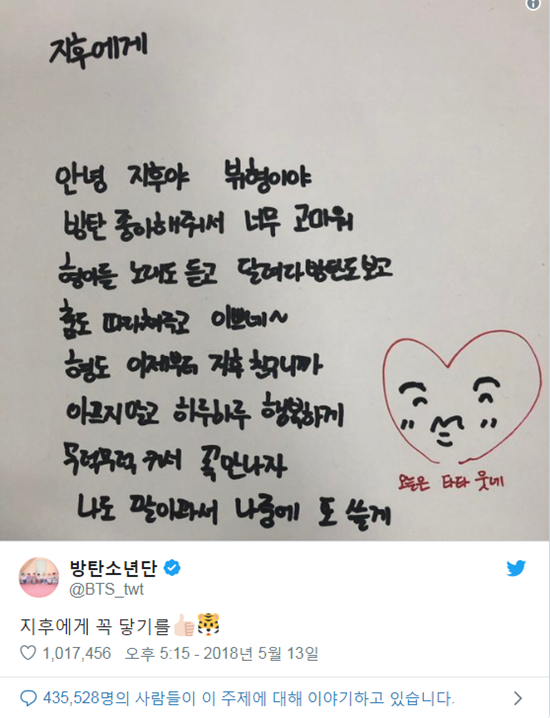 지후에게
안녕 지후야 뷔형이야
방탄 좋아해줘서 너무 고마워
형아들 노래도 듣고 달려라방탄도보고
춤도 따라춰주고 이쁘네~
형도 이제부터 지후 친구니까
아프지말고 하루하루 행복하게
무럭무럭 커서 꼭만나자
나도 팔아파서 나중에 또 쓸게
오늘은 타타 웃네
방탄소년단
@BTS_twt
지후에게 꼭 닿기를👍🏻🐯
1,017,456 오후 5:15 - 2018년 5월 13일
435,528명의 사람들이 이 주제에 대해 이야기하고 있습니다.